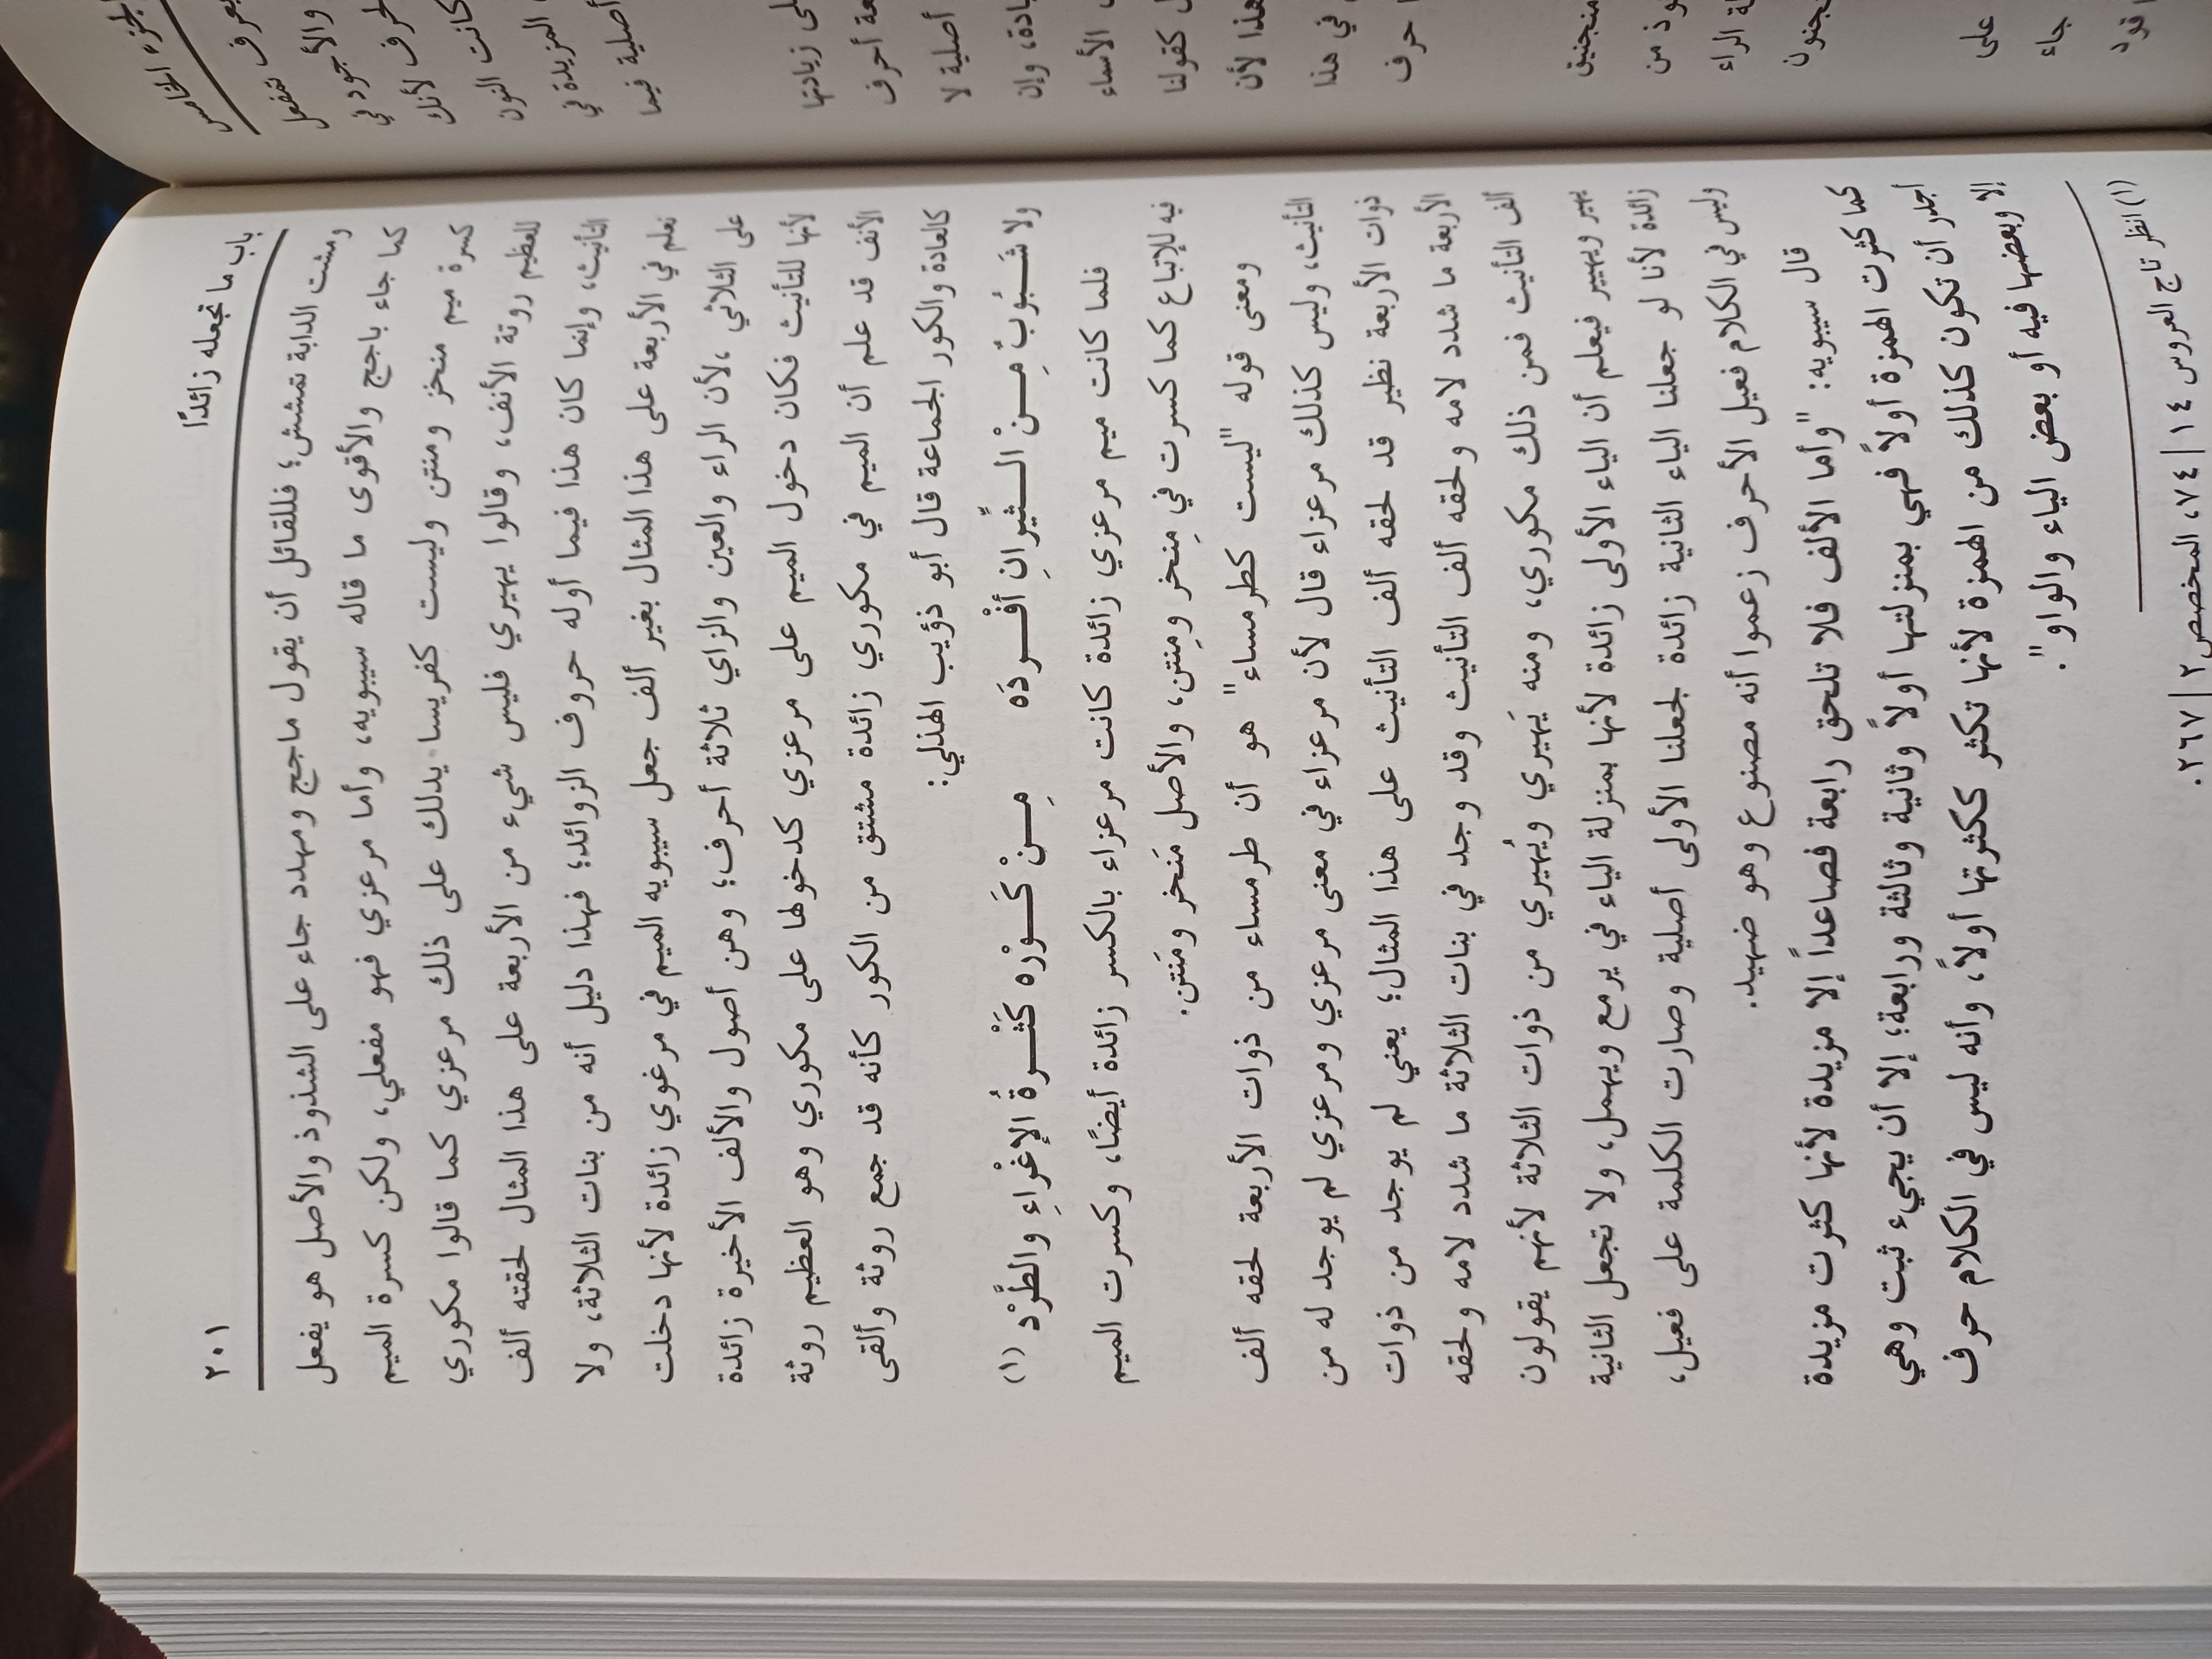 باب ما تجعله زائدًا
٢٠١
ومشت الدابة تمشش؛ فللقائل أن يقول ماجج ومهدد جاء على الشذوذ والأصل هو يفعل
كما جاء باجج والأقوى ما قاله سيبويه، وأما مرعزي فهو مفعلي، ولكن كسرة الميم
كسرة ميم منخز ومنتن وليست كفريسا يدلك على ذلك مرعزي كما قالوا مكوري
للعظيم روتة الأنف، وقالوا يهيري فليس شيء من الأربعة على هذا المثال لحقته ألف
التأنيث، وإنما كان هذا فيما أوله حروف الزوائد؛ فهذا دليل أنه من بنات الثلاثة، ولا
نعلم في الأربعة على هذا المثال بغير ألف جعل سيبويه الميم في مرغوي زائدة لأنها دخلت
على الثلاثي ،لأن الراء والعين والزاي ثلاثة أحرف؛ وهن أصول والألف الأخيرة زائدة
لأنها للتأنيث فكان دخول الميم على مرعزي كدخولها على مكوري وهو العظيم روثة
الأنف قد علم أن الميم في مكوري زائدة مشتق من الكور كأنه قد جمع روثة وألقى
كالعادة والكور الجماعة قال أبو ذؤيب الهذلي:
ولا شَـــبُوبٌ مِـــنْ الـــثِّيرانِ أفْـــردَه مِـــنْ كَـــوْرِه كَثْـــرةُ الإغْراءِ والطَّرْد (١)
فلما كانت ميم مرعزي زائدة كانت مرعزاء بالكسر زائدة أيضًا، وكسرت الميم
فيه للإتباع كما كسرت في مِنخر ومِنتن، والأصل مَنخر ومَنتن.
ومعنى قوله "ليست كطرمساء" هو أن طرمساء من ذوات الأربعة لحقه ألف
التأنيث، وليس كذلك مرعزاء قال لأن مرعزاء في معنى مرعزي ومرعزي لم يوجد له من
ذوات الأربعة نظير قد لحقه ألف التأنيث على هذا المثال؛ يعني لم يوجد من ذوات
الأربعة ما شدد لامه ولحقه ألف التأنيث وقد وجد في بنات الثلاثة ما شدد لامه ولحقه
ألف التأنيث فمن ذلك مكوري، ومنه يَهيري ويُهيري من ذوات الثلاثة لأنهم يقولون
يهير ويهيير فيعلم أن الياء الأولى زائدة لأنها بمنزلة الياء في يرمع ويهمل، ولا تجعل الثانية
زائدة لأنا لو جعلنا الياء الثانية زائدة لجعلنا الأولى أصلية وصارت الكلمة على فعيل،
وليس في الكلام فعيل الأحرف زعموا أنه مصنوع وهو ضهيد.
قال سيبويه: "وأما الألف فلا تلحق رابعة فصاعداً إلا مزيدة لأنها كثرت مزيدة
كما كثرت الهمزة أولاً فهي بمنزلتها أولاً وثانية وثالثة ورابعة؛ إلا أن يجيء ثبت وهي
أجدر أن تكون كذلك من الهمزة لأنها تكثر ككثرتها أولاً، وأنه ليس في الكلام حرف
إلا وبعضها فيه أو بعض الياء والواو".
(١) انظر تاج العروس ١٤ / ٧٤، المخصص ٢ / ٢٦٧.